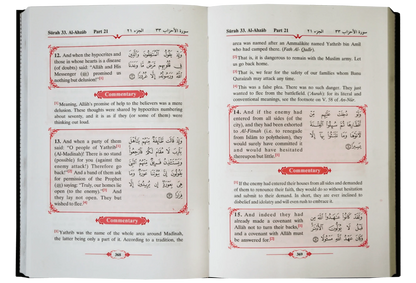 Sûrah 33. Al-Ahzâb Part 21 الجزء ٢١ سورة الأحزاب ٣٣
12. And when the hypocrites and
those in whose hearts is a disease
(of doubts) said: "Allâh and His
Messenger (ﷺ) promised us
nothing but delusion!"[1]
وَإِذْ يَقُولُ ٱلْمُنَٰفِقُونَ وَٱلَّذِينَ
فِى قُلُوبِهِم مَّرَضٌ مَّا وَعَدَنَا ٱللَّهُ
وَرَسُولُهُۥٓ إِلَّا غُرُورًا
Commentary
[1] Meaning, Allâh's promise of help to the believers was a mere
delusion. These thoughts were shared by hypocrites numbering
about seventy, and it is as if they (or some of them) were
thinking out loud.
13. And when a party of them
said: "O people of Yathrib[1]
(Al-Madinah)! There is no stand
(possible) for you (against the
enemy attack!) Therefore go
back!"[2] And a band of them ask
for permission of the Prophet
(ﷺ) saying: "Truly, our homes lie
open (to the enemy)."[3] And
they lay not open. They but
wished to flee.[4]
Commentary
[1] Yathrib was the name of the whole area around Madinah,
the latter being only a part of it. According to a tradition, the
368
Sûrah 33. Al-Ahzâb Part 21 الجزء ٢١ سورة الأحزاب ٣٣
area was named after an Ammalikite named Yathrib bin Amil
who had camped there. (Fath Al-Qadir).
[2] That is, it is dangerous to remain with the Muslim army. Let
us go back home.
[3] That is, we fear for the safety of our families whom Banu
Quraizah may attack any time.
[4] This was a false plea. There was no such danger. They just
wanted to flee from the battlefield.
14. And if the enemy had
entered from all sides (of the
city), and they had been exhorted
to Al-Fitnah (i.e. to renegade
from Islam to polytheism), they
would surely have committed it
and would have hesitated
thereupon but little.[1]
Commentary
[1] If the enemy had entered their houses from all sides and demanded
of them to renounce their faith, they would do so without hesitation
and submit to their demand. In short, they are ever inclined to
disbelief and idolatry and will even rush to embrace it.
15. And indeed they had
already made a covenant with
Allâh not to turn their backs,
and a covenant with Allâh must
be answered for.[1]
369